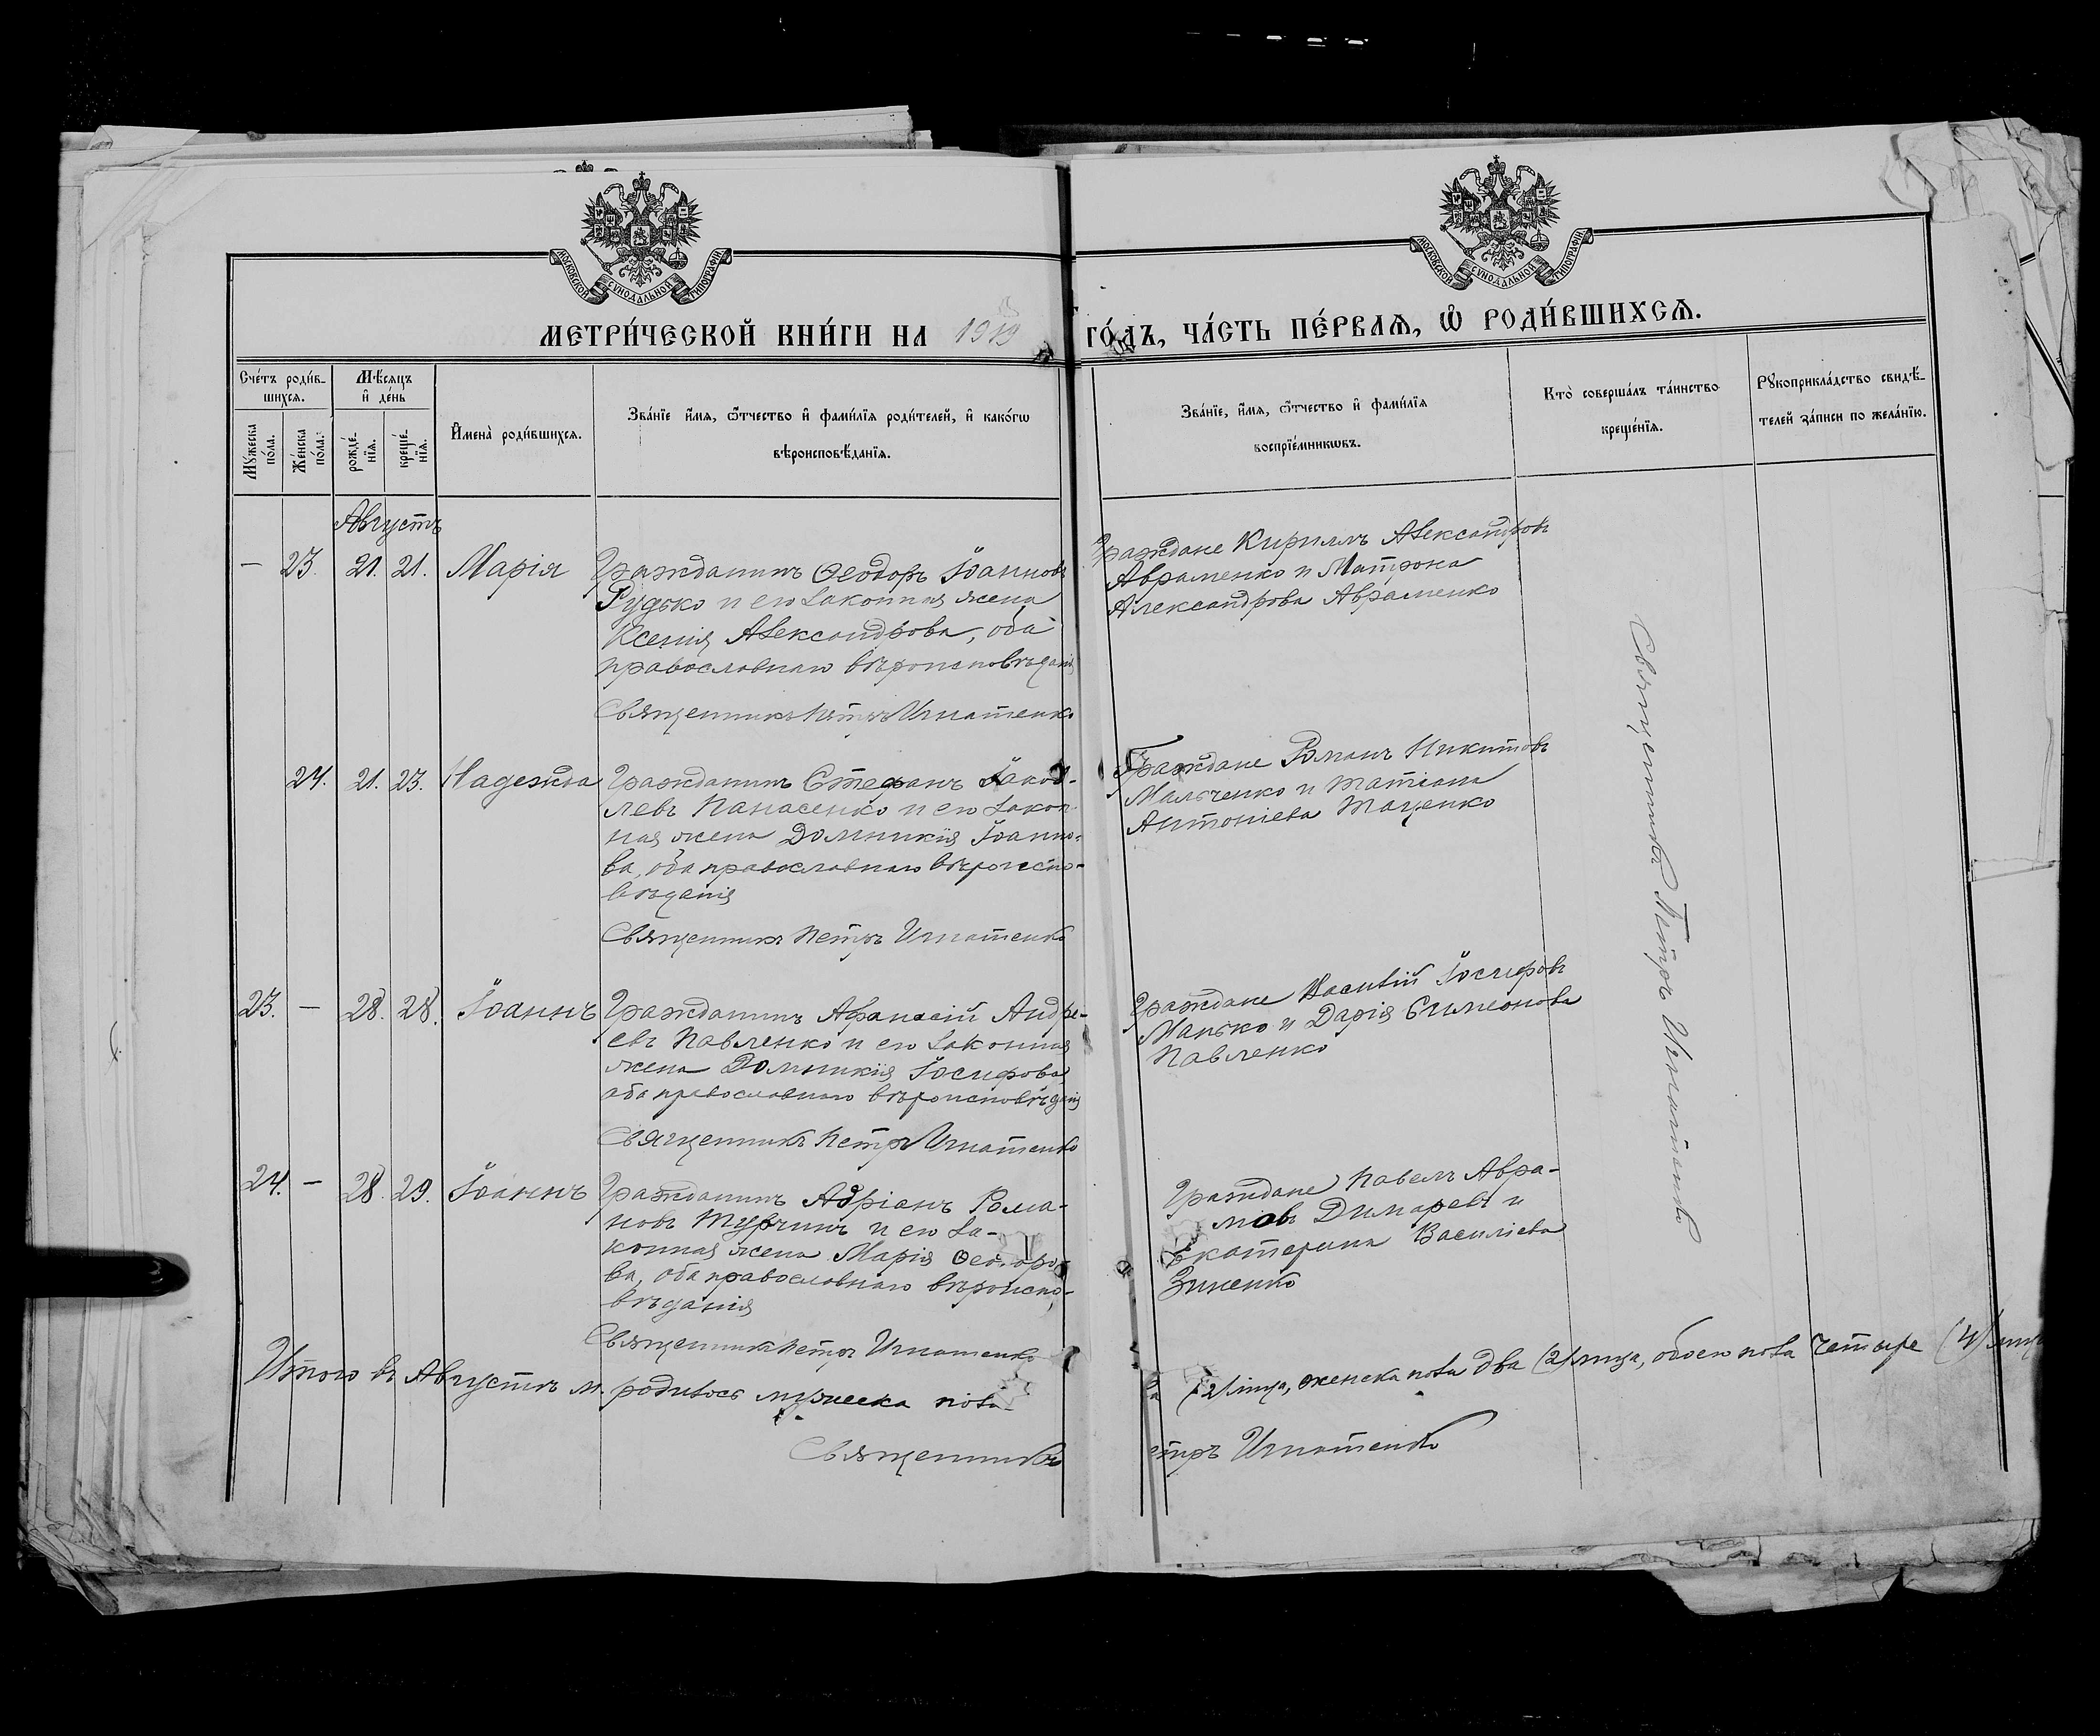 МОСКОВСКОЙ СѴНОДАЛЬНОЙ ТИПОГРАФІИ
МОСКОВСКОЙ СѴНОДАЛЬНОЙ ТИПОГРАФІИ
МЕТРИ́ЧЕСКОЙ КНИ́ГИ НА 1919 ГО́ДЪ, ЧА́СТЬ ПЕ́РВАѦ, Ѡ РОДИ́ВШИХСѦ.
Сче́тъ роди́в-
шихсѧ.
Мꙋ́жеска
по́ла.
Же́нска
по́ла.
Мѣ́сѧцъ
и҆ де́нь
рожде́-
нїѧ.
креще́-
нїѧ.
И҆мена̀ роди́вшихсѧ.
Зва́нїе и҆́мѧ, ѻ҆́тчество и҆ фами́лїѧ роди́телей, и҆ како́гѡ
вѣроисповѣ́данїѧ.
Зва́нїе, и҆́мѧ, ѻ҆́тчество и҆ фами́лїѧ
воспрїе́мникѡвъ.
Кто̀ соверша́лъ та́инство
креще́нїѧ.
Рꙋкоприкла́дство свидѣ́-
телей за́писи по жела́нїю.
Августъ
— 23. 21. 21. Марія
Гражданинъ Ѳеодоръ Іоанновъ
Рудько и его законная жена
Ксенія Александрова, оба
православнаго вѣроисповѣданія
Священникъ Петръ Игнатенко
Граждане Кириллъ Александровъ
Авраменко и Матрона
Александрова Авраменко
24. 21. 23. Надежда
Гражданинъ Стефанъ Іаков-
левъ Панасенко и его закон-
ная жена Домникія Іоанно-
ва, оба православнаго вѣроиспо-
вѣданія
Священникъ Петръ Игнатенко
Граждане Романъ Никитовъ
Мальченко и Татіана
Антоніева Таценко
23. — 28. 28. Іоаннъ
Гражданинъ Афанасій Андре-
евъ Павленко и его законная
жена Домникія Іосифова,
оба православнаго вѣроисповѣданія
Священникъ Петръ Игнатенко
Граждане Василій Іосифовъ
Манько и Дарія Симеонова
Павленко
24. — 28. 29. Іоаннъ
Гражданинъ Адріанъ Рома-
новъ Турчинъ и его за-
конная жена Марія Ѳеодоро-
ва, оба православнаго вѣроиспо-
вѣданія
Священникъ Петръ Игнатенко
Граждане Павелъ Авра-
мовъ Димаревъ и
Екатерина Василіева
Зиненко
Священникъ Петръ Игнатенко
Итого въ Августѣ м. родилось мужеска пола
ва (2) лица, женска пола два (2) лица, обоего пола четыре (4) лица
Священникъ
етръ Игнатенко